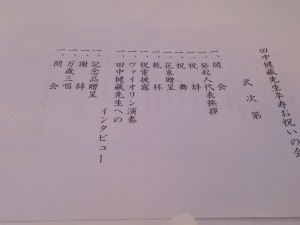 田中健蔵先生卒寿お祝いの会
式次第
一、開会
一、発起人代表挨拶
一、祝辞
一、祝舞
一、花束贈呈
一、乾杯
一、祝電披露
一、ヴァイオリン演奏
一、田中健蔵先生への
インタビュー
一、記念品贈呈
一、謝辞
一、万歳三唱
一、閉会